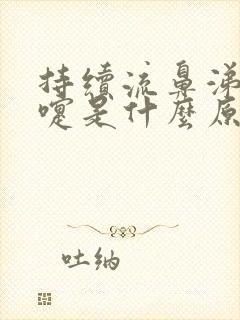 持續流鼻涕
嚏是什麼原
吐納